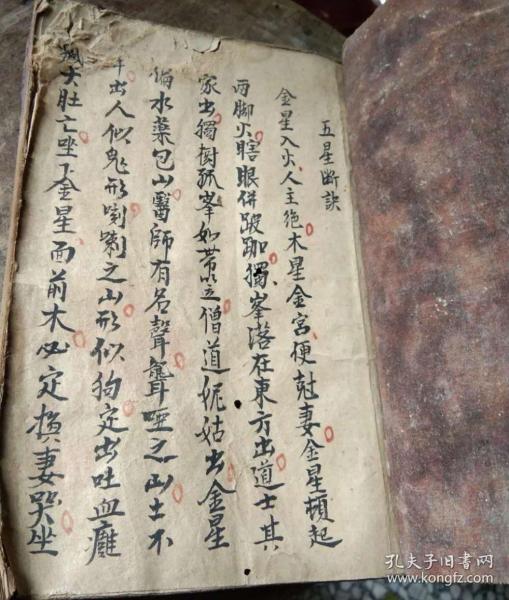 五星断訣
金星入火人主绝木星金宫便尅妻金星頓起
两脚火瞎眼併跛跏獨峯落在東方出道士其
家出獨樹孤峯如帶笠僧道妮姑出金星
偏水藥包山醫師有名聲聾啞之山土不
出人似鬼形之山形似狗定出吐血癰
大肚亡坐下金星面前木必定損妻哭坐
孔夫子旧书网
www.kongfz.com